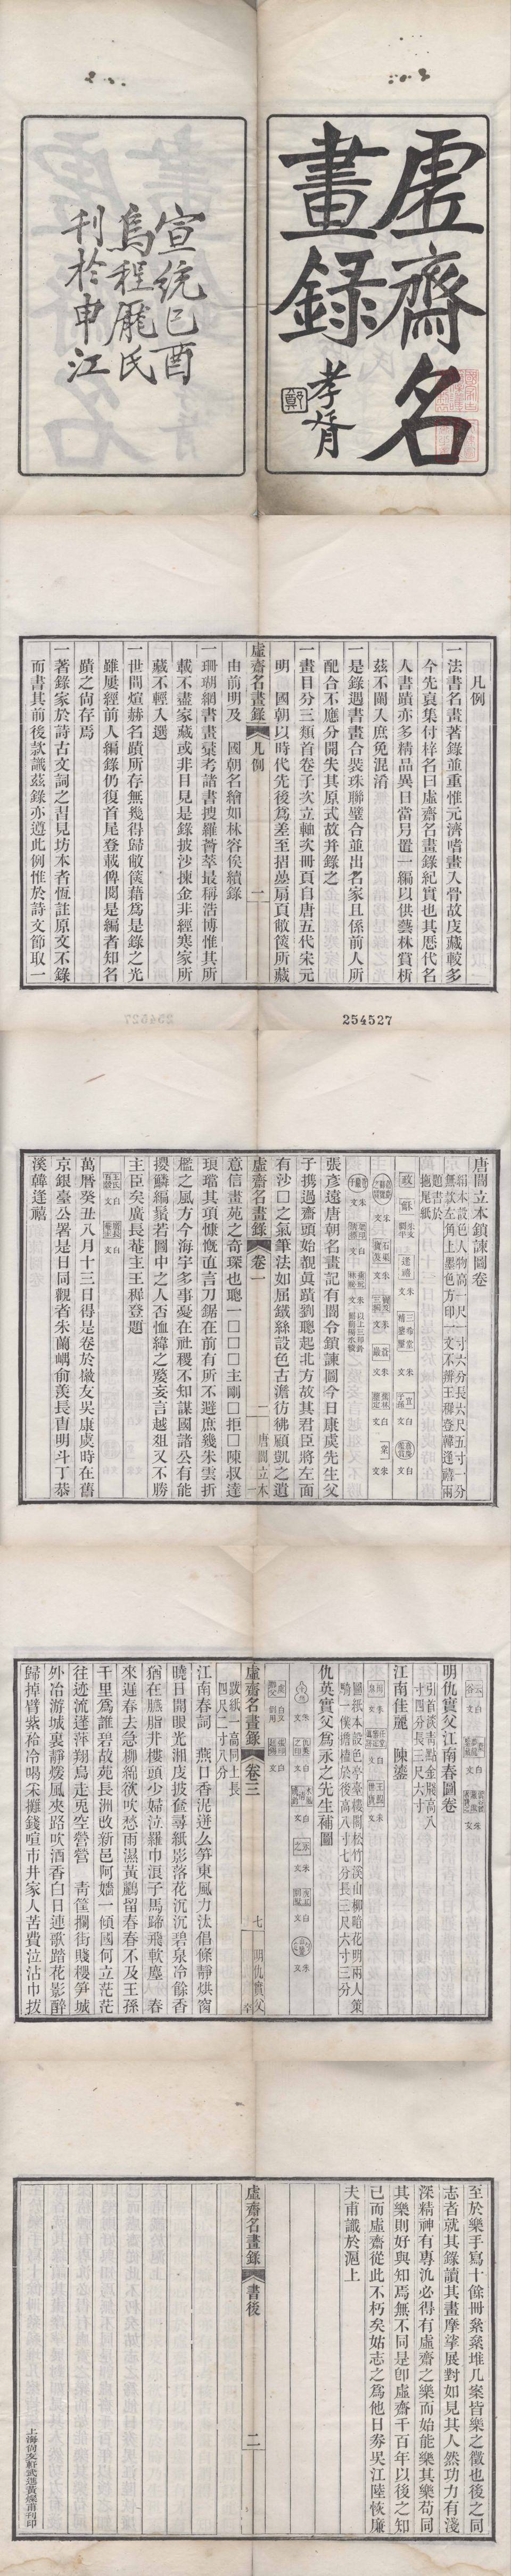 虛齋名
畫錄
孝胥
宣統己酉
烏程龐氏
刊於申江
凡例
一法書名畫著錄並重惟元濟嗜畫入骨故庋藏較多
今先裒集付梓名曰虛齋名畫錄紀實也其歷代名
人書蹟亦多精品異日當另置一編以供藝林賞析
茲不闌入庶免混淆
一是錄遇書畫合裝珠聯璧合並出名家且係前人所
配合不應分開失其原式故并錄之
一畫目分三類首卷子次立軸次冊頁自唐五代宋元
明 國朝以時代先後為差至摺疊扇頁敝篋所藏
虛齋名畫錄 凡例 二
由前明及 國朝名繪如林容俟續錄
一珊瑚網書畫彙考諸書搜羅薈萃最稱浩博惟其所
載不盡家藏或非目見是錄披沙揀金非經寒家所
藏不輕入選
一世間煊赫名蹟所存無幾得歸敝篋藉為是錄之光
雖屢經前人編錄仍復首尾登載俾閱是編者知名
蹟之尙存焉
一著錄家於詩古文詞之習見坊本者恆註原文不錄
而書其前後款識茲錄亦遵此例惟於詩文節取一
254527
唐閻立本鎖諫圖卷
絹本設色人物高一尺一寸六分長六尺五寸一分
無款左角上墨色方印一文不辨王穉登韓逢禧兩
題書於
拖尾紙
張彥遠唐朝名畫記有閻令鎖諫圖今日康虞先生父
子携過齋頭始覩眞蹟劉聰起北方故其君臣將左面
有沙口之氣筆法如屈鐵絲設色古澹彷彿顧凱之遺
虛齋名畫錄 卷一 二 唐閻立本 一
意信畫苑之奇琛也聰一口口口主剛口拒口陳叔達
琅璫其項慷慨直言刀鋸在前有所不避庶幾朱雲折
檻之風方今海宇多事憂在社稷不知謀國諸公有能
攖鱗編鬚若圖中之人否恤緯之嫠妄言越俎又不勝
主臣矣廣長菴主王穉登題
萬曆癸丑八月十三日得是卷於㠓友吳康虞時在舊
京銀臺公署是日同觀者朱蘭嵎俞羨長曹明斗丁恭
溪韓逢禧
明仇實父江南春圖卷
引首淡靑點金牋高八
寸四分長三尺六寸
江南佳麗 陳鎏
圖紙本設色亭臺樓閣松竹溪山柳暗花明兩人策
騎一僕擔榼於後高八寸七分長三尺六寸三分
仇英實父為永之先生補圖
虛齋名畫錄 卷三 七 明仇實父
跋紙一高同上長
四尺二寸八分
江南春詞 燕口香泥迸幺笋東風力汰倡條靜烘窗
曉日開眼光湘庋披奩尋紙影落花沉沉碧泉冷餘香
猶在臙脂井樓頭少婦泣羅巾浪子馬蹄飛軟塵 春
來遲春去急柳綿欲吹愁雨濕黃鸝留春春不及王孫
千里為誰碧故苑長洲改新邑阿嬙一傾國何立茫茫
往迹流蓬萍翔鳥走兎空營營 靑筐攔街賤櫻笋城
外冶游城裏靜煖風夾路吹酒香白日連歌踏花影醉
歸掉臂紫袷冷喝采攤錢喧市井家人苦費泣沾巾拔
至於樂手寫十餘冊纍纍堆几案皆樂之徵也後之同
志者就其錄讀其畫摩挲展對如見其人然功力有淺
深精神有專氿必得有虛齋之樂而始能樂其樂苟同
其樂則好與知焉無不同是卽虛齋千百年以後之知
已而虛齋從此不朽矣姑志之為他日券吳江陸恢廉
夫甫識於滬上
虛齋名畫錄 書後 二
上海尙友軒武進黃燦甫刊印